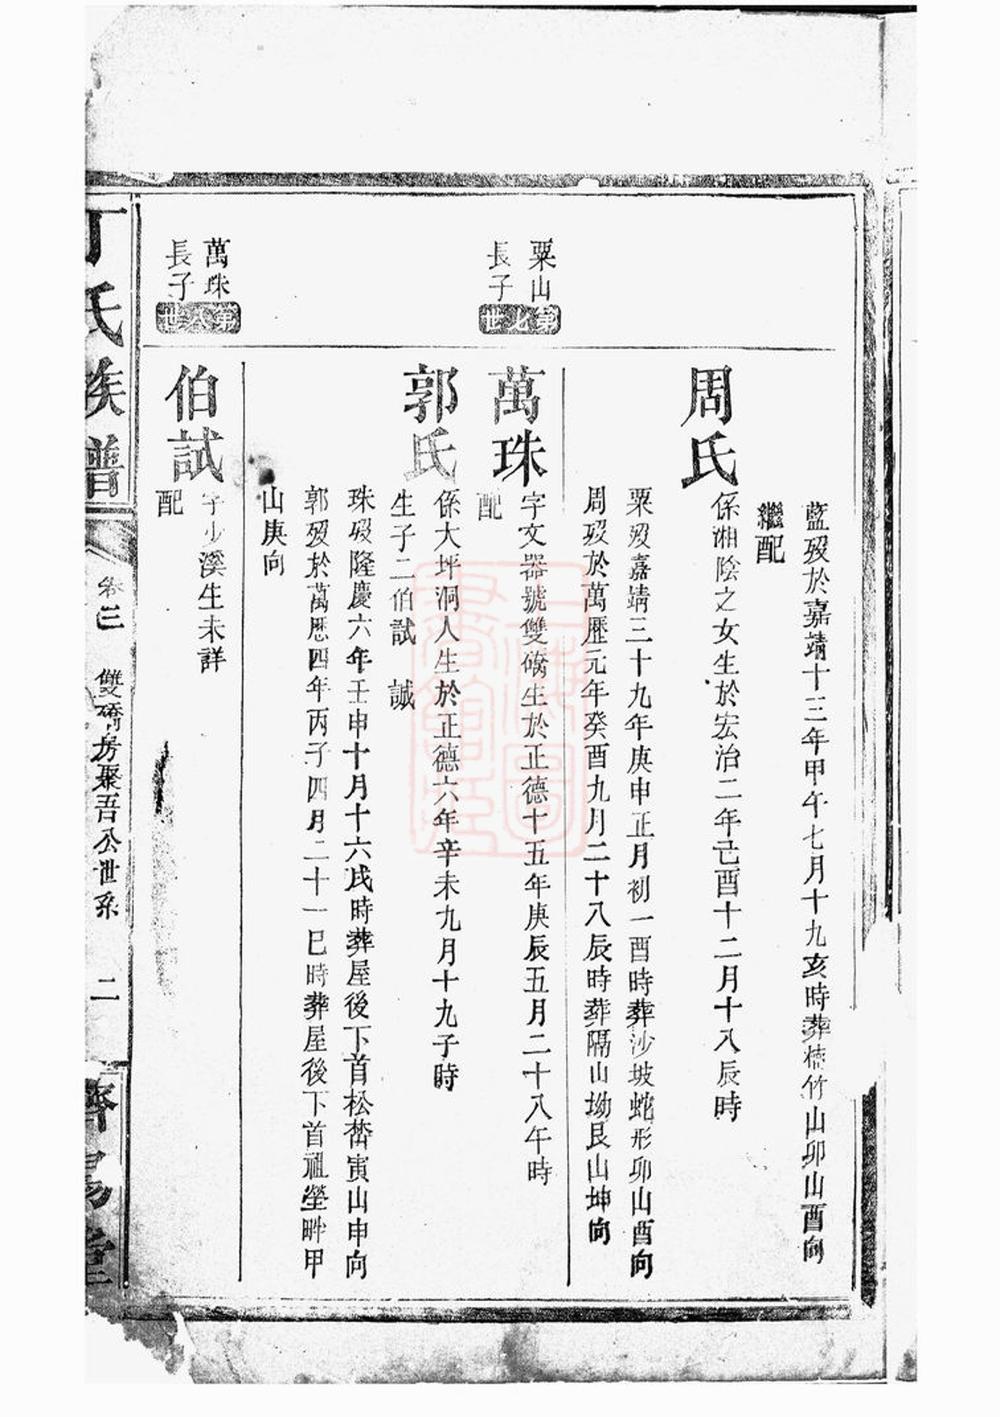 藍歿於嘉靖十三年甲午七月十九亥時葬楠竹山卯山酉向
繼配
周氏
係湘陰之女生於宏治二年己酉十二月十八辰時
粟歿嘉靖三十九年庚申正月初一酉時葬沙坡蛇形卯山酉向
周歿於萬歷元年癸酉九月二十八辰時葬隔山坳艮山坤向
粟山
長子
第七世
萬珠
字文器號雙嶠生於正德十五年庚辰五月二十八午時
配
郭氏
係大坪洞人生於正德六年辛未九月十九子時
生子二伯試 誠
珠歿隆慶六年壬申十月十六戌時葬屋後下首松嵒寅山申向
郭歿於萬歷四年丙子四月二十一巳時葬屋後下首祖塋畔甲
山庚向
萬珠
長子
第八世
伯試
字少溪生未詳
配
丁氏族譜
卷三
雙嶠房聚吾公世系
二
濟陽堂